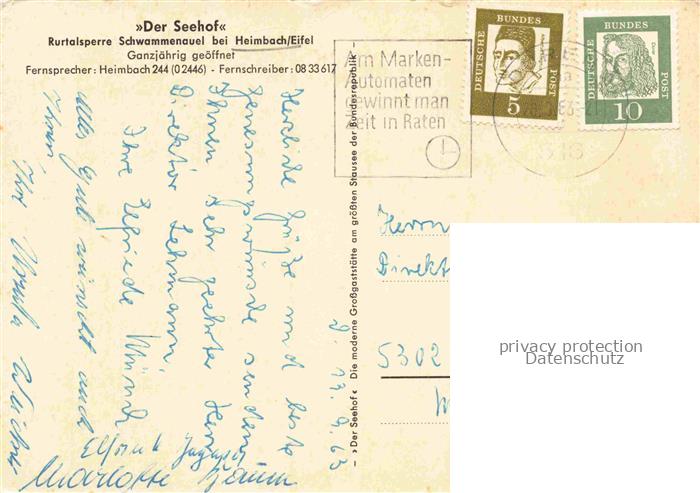 »Der Seehof«
Rurtalsperre Schwammenauel bei Heimbach/Eifel
Ganzjährig geöffnet
Fernsprecher: Heimbach 244 (0 2446) - Fernschreiber: 08 33 617
Am Marken-
Automaten
gewinnt man
Zeit in Raten
DEUTSCHE BUNDES POST
5
DEUTSCHE BUNDES POST
Dürer
10
d. 13.9.63
Herzliche Grüße und beste
Genesungswünsche senden
Ihnen sehr geehrter Herr
Direktor Lehmann
Ihre Elfriede Münch
Alles Gute wünscht auch
Ihnen, Ihre Ursula
Charlotte
– »Der Seehof« Die moderne Großgaststätte am größten Stausee der Bundesrepublik –
Herrn
Direkt
5302
privacy protection
Datenschutz